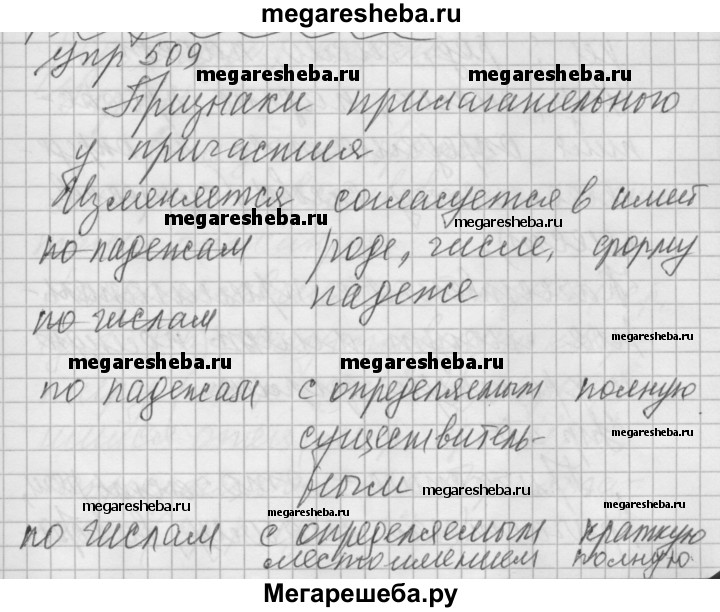 megaresheba.ru
упр 509
megaresheba.ru megaresheba.ru
Признаки прилагательного
у причастия
Изменяется согласуется в имеет
megaresheba.ru megaresheba.ru
по падежам роде, числе, форму
падеже
по числам
megaresheba.ru
megaresheba.ru megaresheba.ru
по падежам с определяемым полную
существитель-
megaresheba.ru
ным
megaresheba.ru megaresheba.ru megaresheba.ru
по числам с определяемым краткую
местоимением полную
Мегарешеба.ру